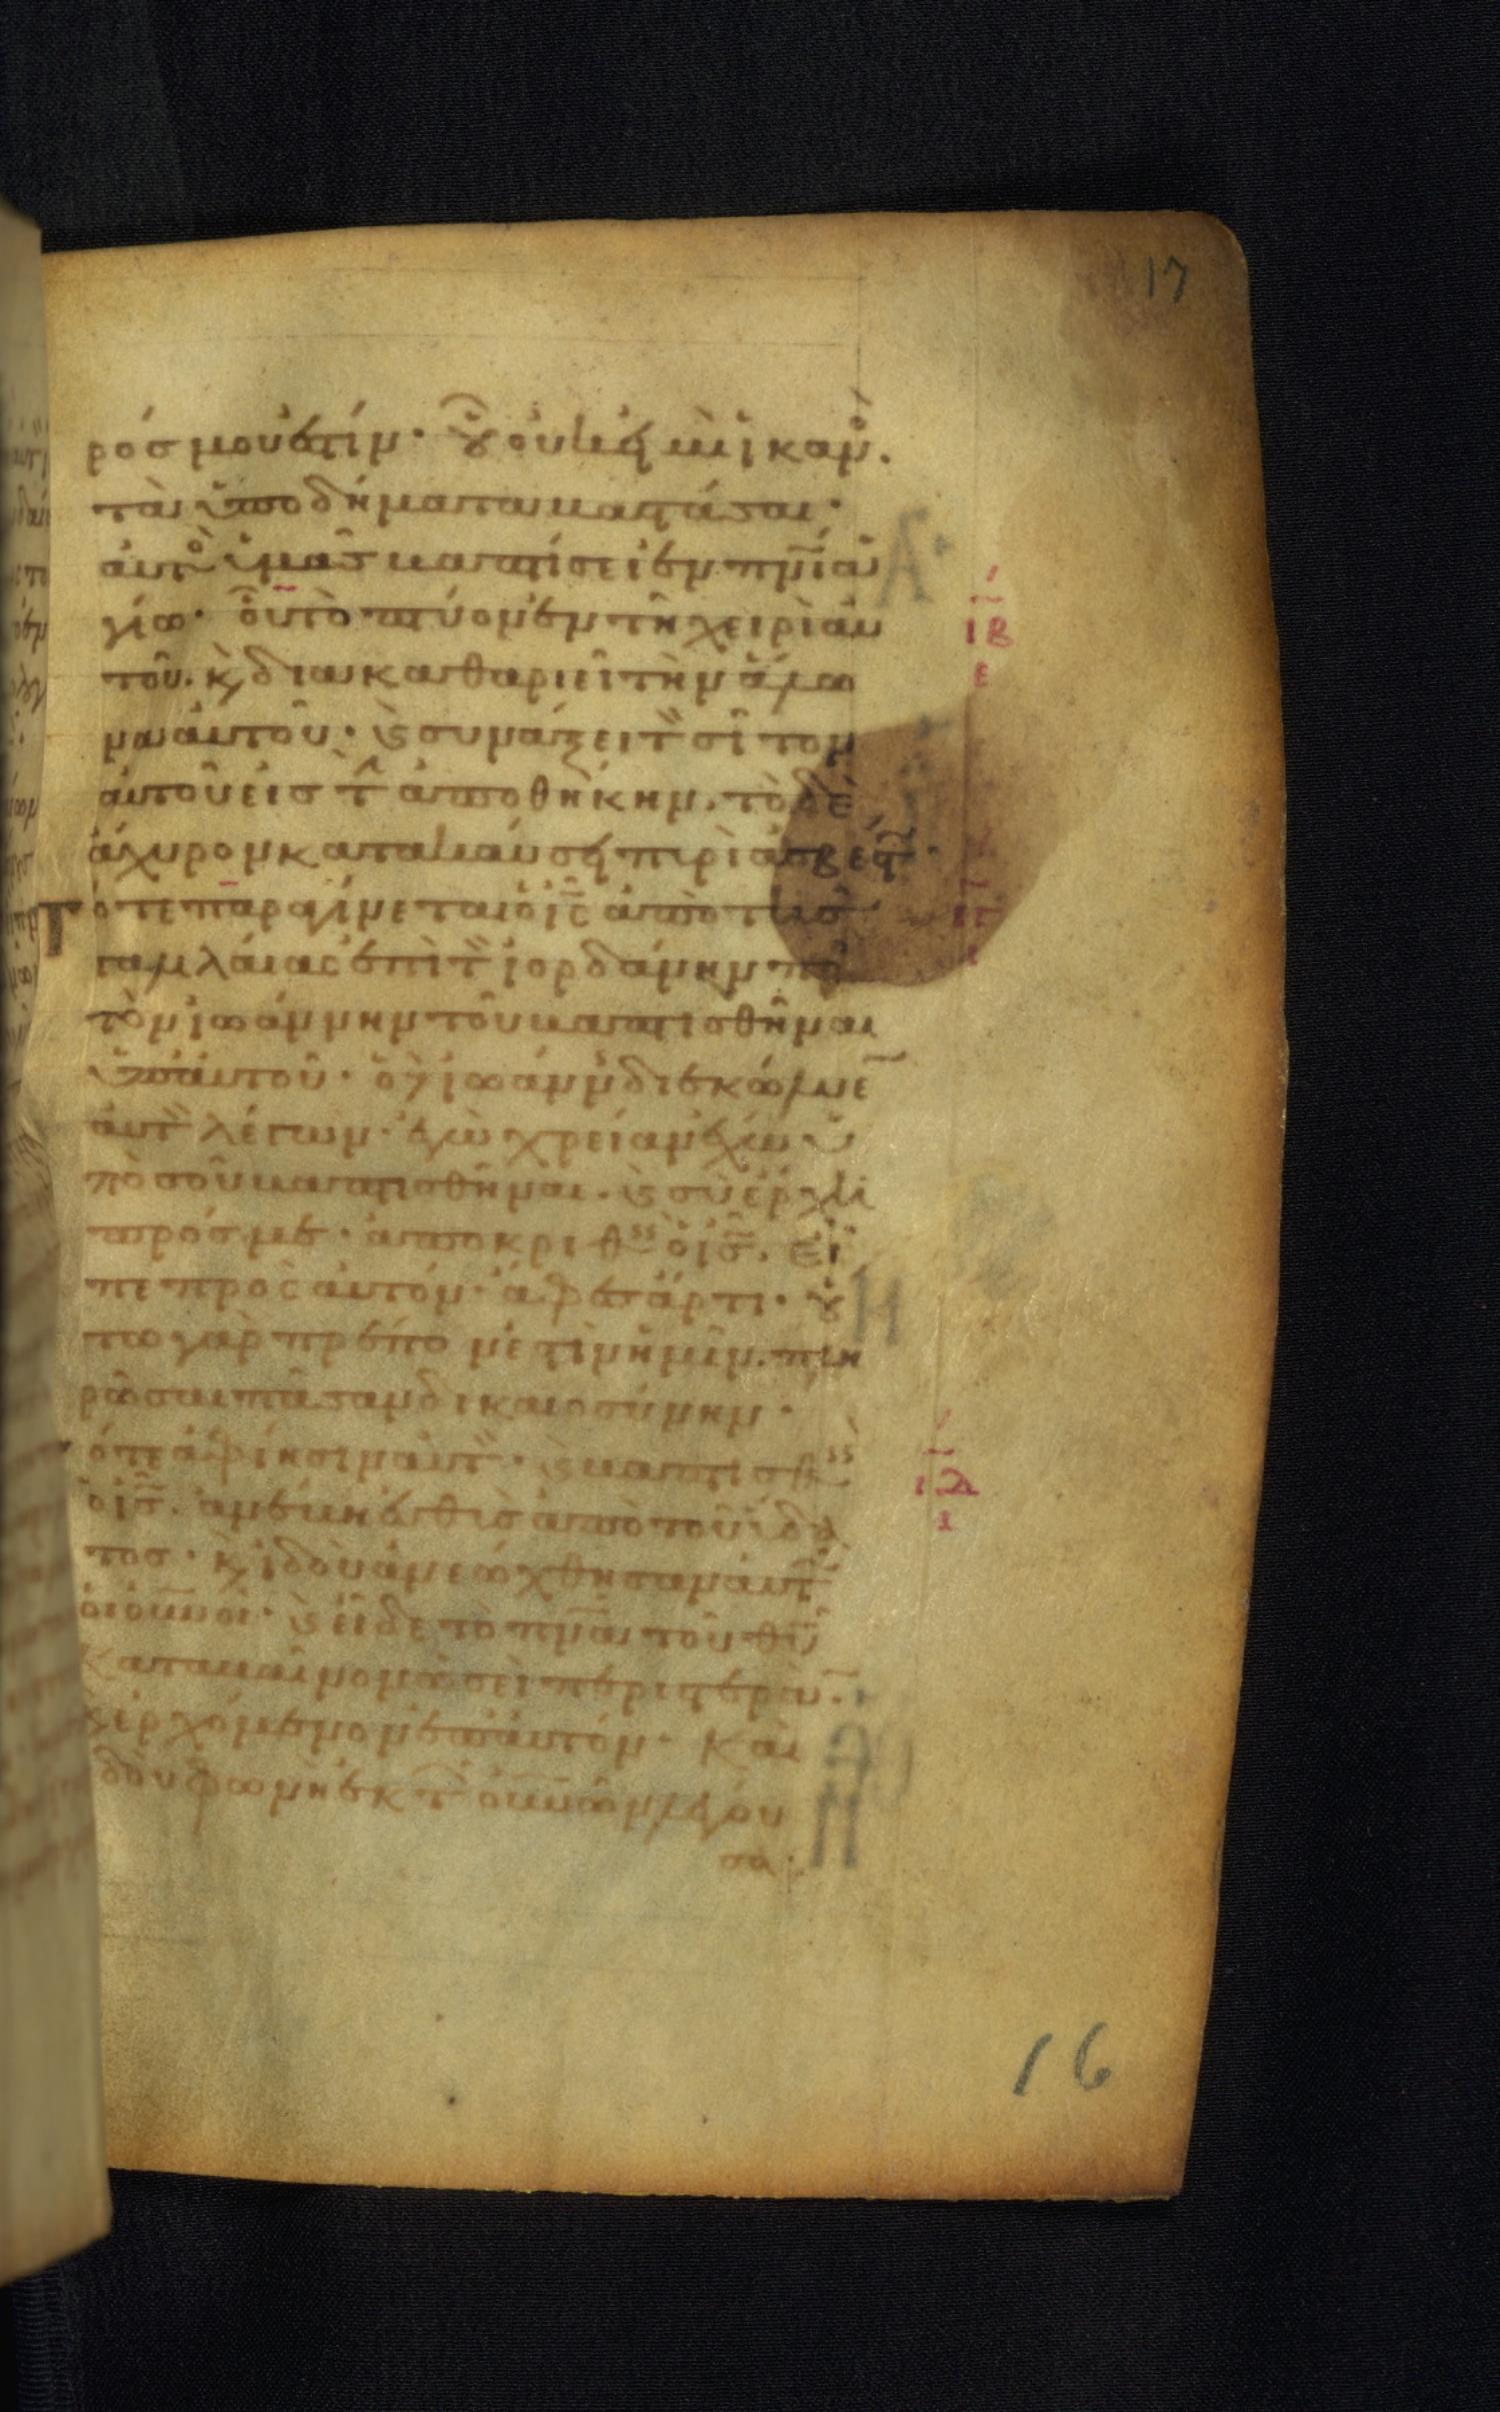 17
ρόσ μου ἐστίν· οὗ οὐκ εἰμὶ ἱκαν.
τὰ ὑποδήματα βαστάσαι·
αὐτὸ ὑμᾶσ βαπτίσει ἐν πνι ἁ
γίω· οὗ τὸ πτύον ἐν τῆ χειρὶ αυ
τοῦ. κ διακαθαριεῖ τὴν ἅλω
να αὐτοῦ· κ συνάξει τ σῖτον
αὐτοῦ εἰσ τ ἀποθήκην. τὸ δὲ
ἄχυρον κατακαύσει πυρὶ ἀσβέστ·
Τότε παραγίνεται ὁ ις ἀπὸ τῆσ
γαλιλαίας ἐπὶ τ ἰορδάνην πρ
τὸν ἰωάννην τοῦ βαπτισθῆναι
ὑπ' αὐτοῦ· ὁ δὲ ἰωάνν διεκώλυε
αὐτ λέγων· ἐγὼ χρείαν ἔχω ὑ
πὸ σοῦ βαπτισθῆναι. κ σὺ ἔρχη
πρόσ με· ἀποκριθ ὁ ισ. εἶ
πε πρὸς αὐτόν· ἄφεσ ἄρτι· οὕ
τω γὰρ πρέπον ἐστὶν ἡμῖν. πλη
ρῶσαι πᾶσαν δικαιοσύνην·
ότε ἀφίησιν αὐτ· κ βαπτισθ
ὁ ισ. ἀνέβη εὐθὺσ ἀπὸ τοῦ ὕδα
τοσ· κ ἰδοὺ ἀνεώχθησαν αὐτ
οἱ οὐνοι· κ εἶδε τὸ πνα τοῦ θυ
καταβαῖνον ὡσεὶ περιστερὰν·
κ ἐρχόμενον ἐπ' αὐτόν· Καὶ
δοὺ φωνὴ ἐκ τ οὐνῶν λέγου
σα·
ΙΒ
Ε
ΙΓ
Ι
ΙΔ
Ι
16